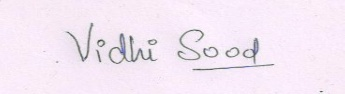 Vidhi Sood